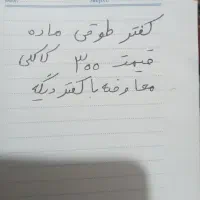 کفتر طوقی ماده
قیمت ۳۰۰ کاکلی
معاوضه با کفتر دیگه